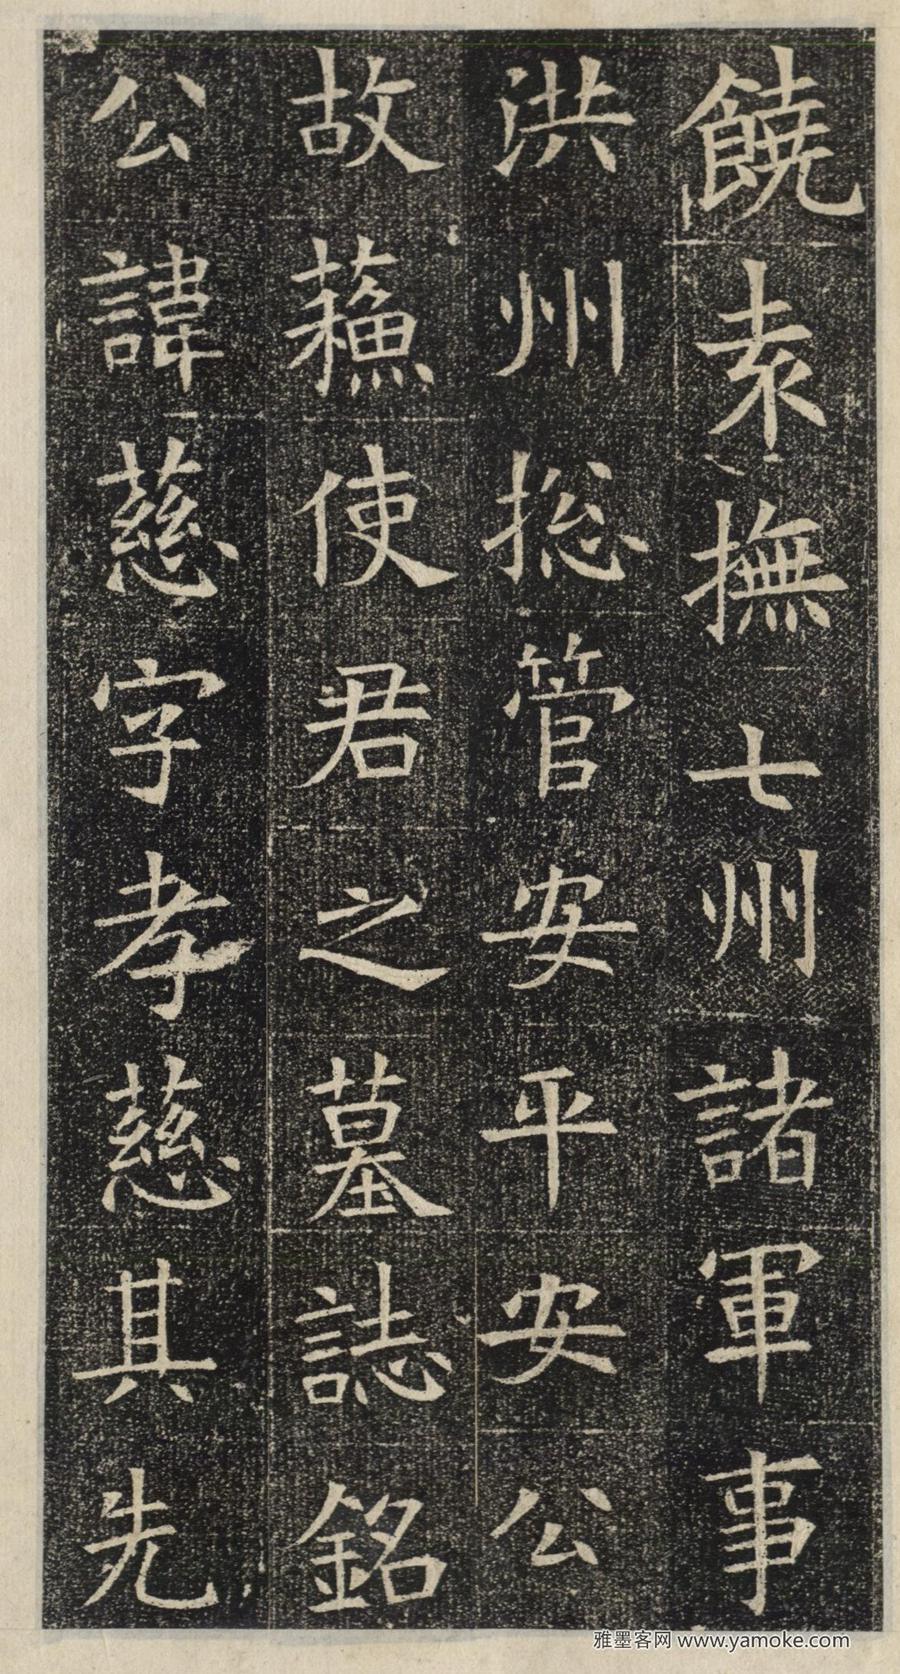 饒袁撫七州諸軍事
洪州捴管安平安公
故蘓使君之墓誌銘
公諱慈字孝慈其先
雅墨客网 www.yamoke.com